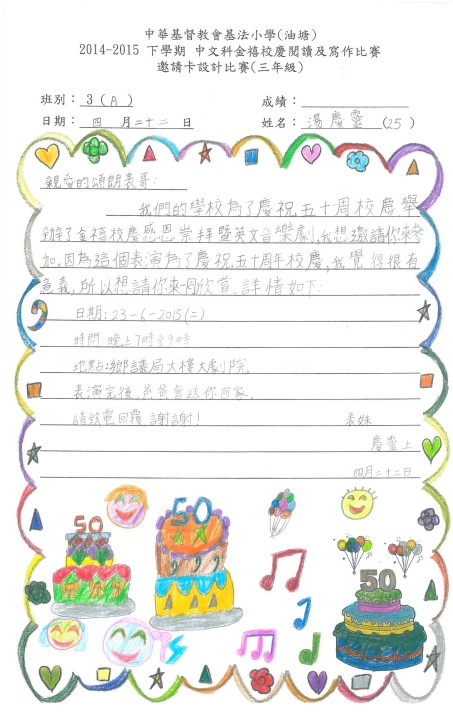 中華基督教會基法小學(油塘)
2014-2015 下學期 中文科金禧校慶閱讀及寫作比賽
邀請卡設計比賽(三年級)
班別： 3 (A) 成績：
日期： 四 月二十二 日 姓名： 湯慶靈 (25)
親愛的頌朗表哥：
我們的學校為了慶祝五十周校慶舉
辦了金禧校慶感恩崇拜暨英文音樂劇,我想邀請你來參
加。因為這個表演為了慶祝五十周年校慶,我覺得很有
意義,所以想請你來欣賞。詳情如下:
日期:23-6-2015(二)
時間:晚上7時至9時
地點:鄉議局大樓大劇院
表演完後,爸爸會送你回家。
請致電回覆,謝謝! 表姓
慶靈上
四月二十二日
50
50
50